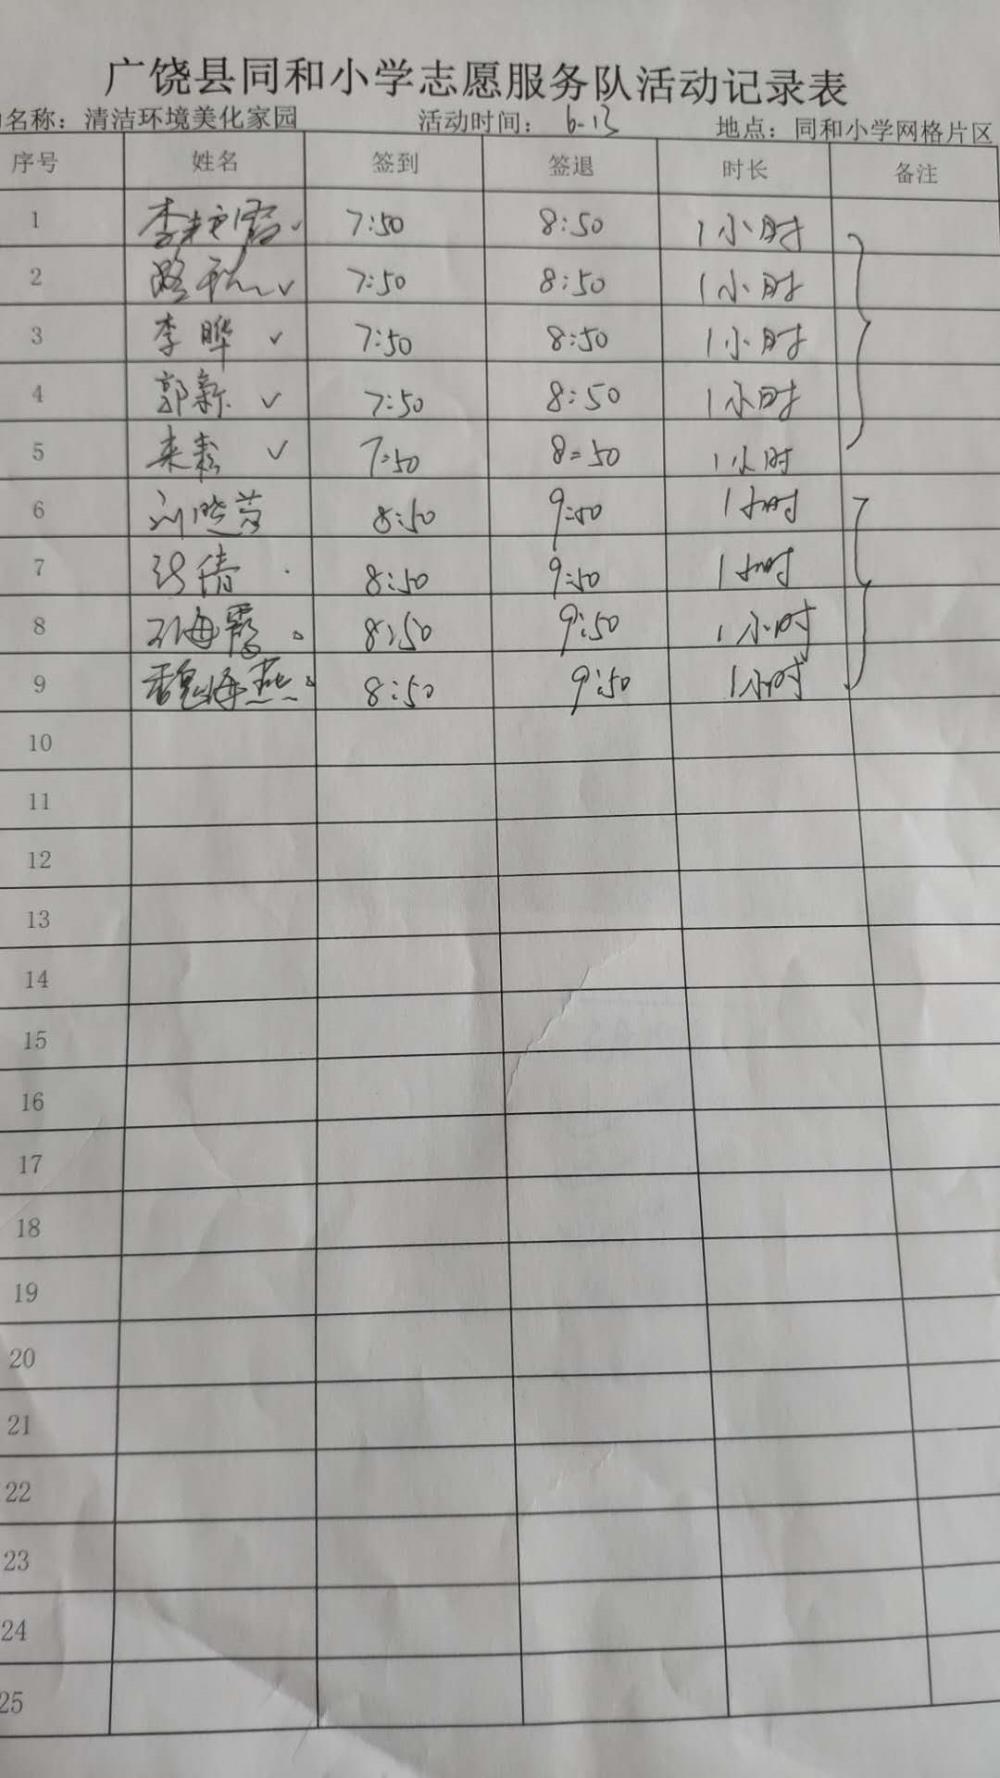 广饶县同和小学志愿服务队活动记录表
名称：清洁环境美化家园 活动时间：6.13 地点：同和小学网格片区
序号 姓名 签到 签退 时长 备注
1 7:50 8:50 1小时
2 7:50 8:50 1小时
3 李晔 ✓ 7:50 8:50 1小时
4 郭新 ✓ 7:50 8:50 1小时
5 ✓ 7:50 8:50 1小时
6 刘晓芳 8:50 9:50 1小时
7 张倩 8:50 9:50 1小时
8 石海霞 8:50 9:50 1小时
9 魏海燕 8:50 9:50 1小时
10
11
12
13
14
15
16
17
18
19
20
21
22
23
24
25